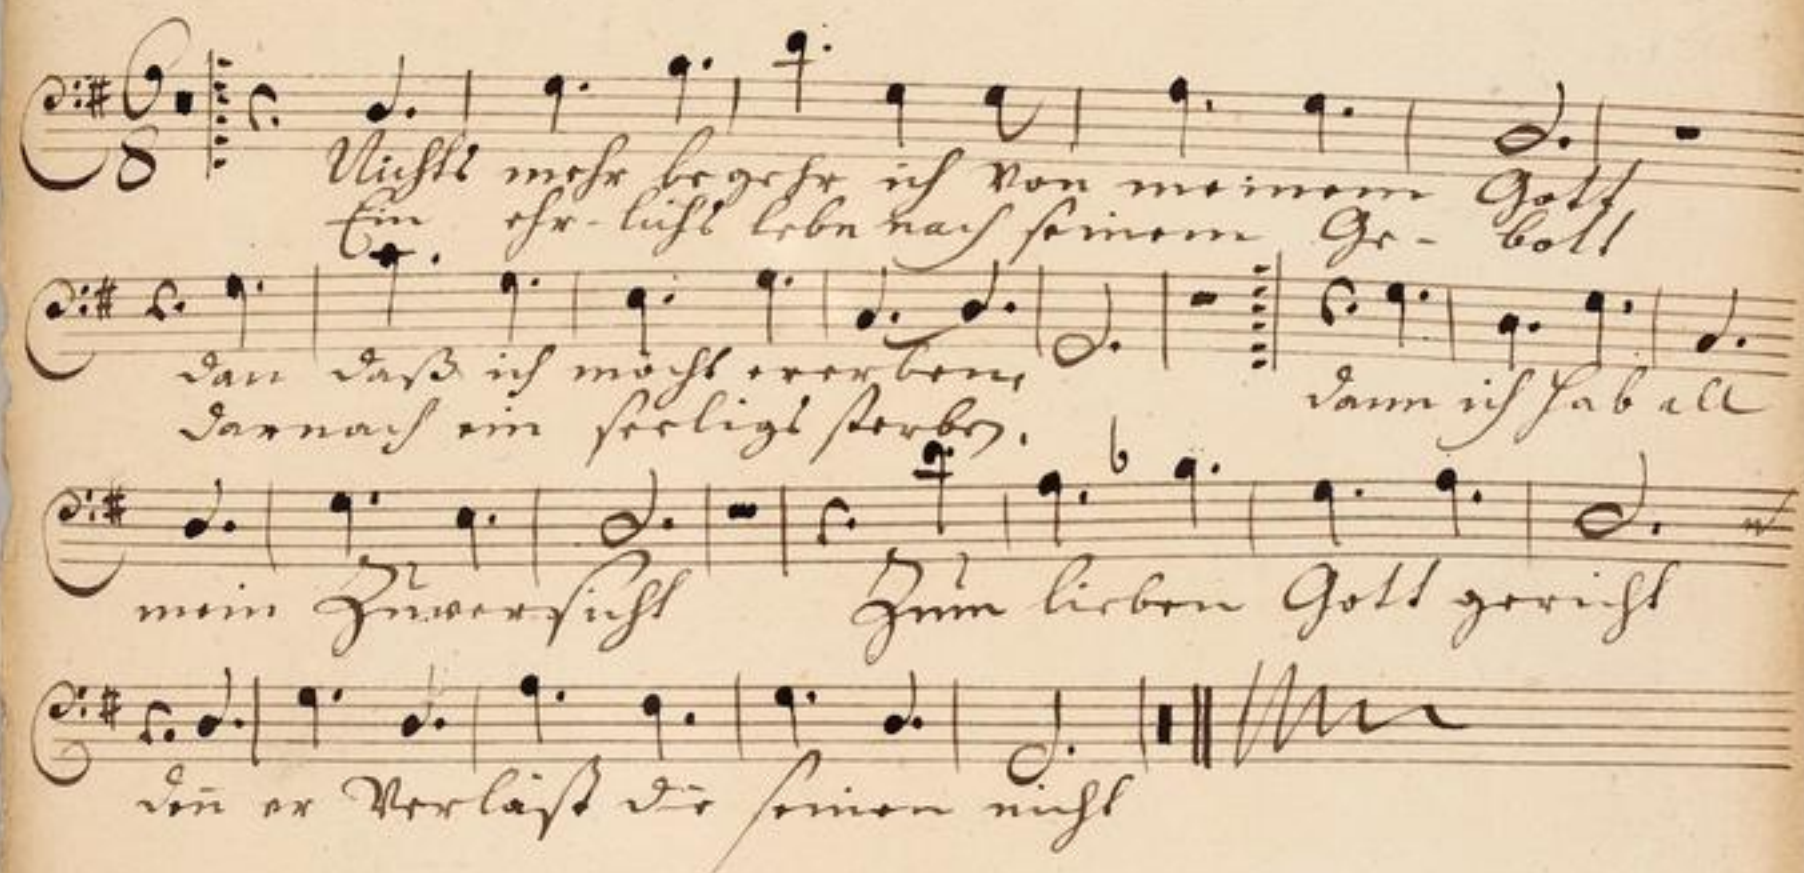 6
8
Nichts mehr begehr ich Von meinem Gott
Ein ehr-lichs lebn nach seinem Ge- bott
dan daß ich möcht ererben,
darnach ein seeligs sterben.
dann ich hab all
mein Zuversicht Zum lieben Gott gericht
den̄ er Verläst die seinen nicht